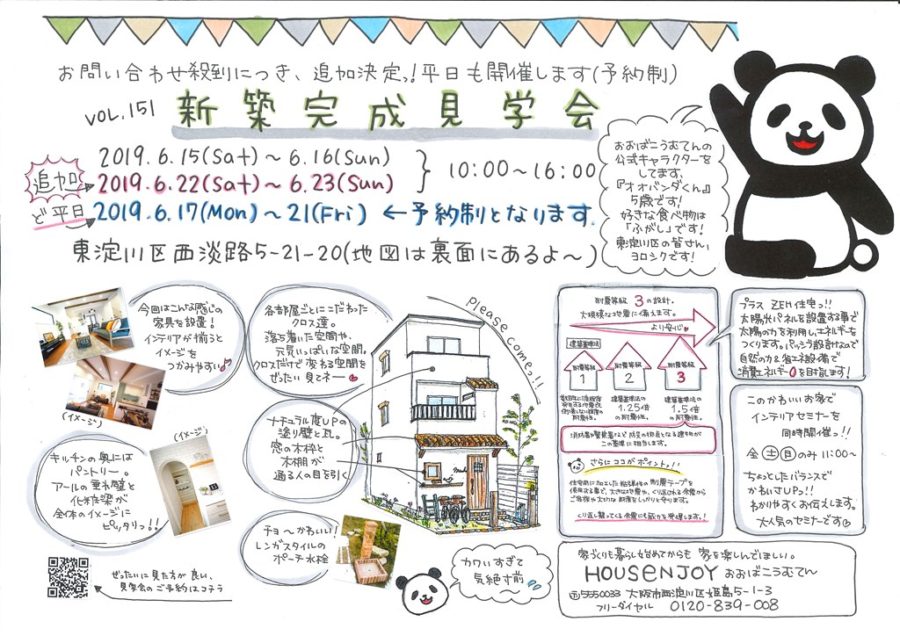 お問い合わせ殺到につき、追加決定っ!平日も開催します(予約制)
VOL.151 新築完成見学会
2019.6.15(Sat)～6.16(Sun)
追加 2019.6.22(Sat)～6.23(Sun)
10:00～16:00
ど平日 2019.6.17(Mon)～21(Fri) ←予約制となります。
東淀川区西淡路5-21-20(地図は裏面にあるよ～)
おおばこうむてんの
公式キャラクターを
してます。
『オオパンダくん』
5歳です!
好きな食べ物は
「ふがし」です!
東淀川区の皆さん、
ヨロシクです!
今回はこんな感じの
家具を設置!
インテリアが揃うと
イメージを
つかみやすい
(イメージ)
各部屋ごとにこだわった
クロス達。
落ち着いた空間や、
元気いっぱいな空間。
クロスだけで変わる空間を
ぜったい見てネー
please come〜っ!!
ナチュラル度UPの
塗り壁と瓦。
窓の木枠と
木棚が
通る人の目を引く
(イメージ)
キッチンの奥には
パントリー。
アールの垂れ壁と
化粧梁が
全体のイメージに
ピッタリっ!!
チョ〜かわいい!
レンガスタイルの
ポーチ水栓
カワいすぎて
気絶寸前
耐震等級 3の設計。
大規模な地震に備えます。
より安心
建築基準法
耐震等級 1
耐震等級 2
耐震等級 3
建築基準法の
1.25倍
の耐震性。
建築基準法の
1.5倍
の耐震性。
さらにココがポイントっ!!
プラス ZEH住宅っ!!
太陽光パネルを設置する事で
太陽の力を利用しエネルギーを
つくります。パッシブ設計による
自然の力と省エネ設備で
消費エネルギー0を目指します!
このかわいいお家で
インテリアセミナーを
同時開催っ!!
金・土・日のみ 11:00〜
ちょっとしたバランスで
かわいさUPっ!!
わかりやすくお伝えします。
大人気のセミナーです
ぜったいに見た方が良い、
見学会のご予約はコチラ
家づくりも暮らし始めてからも 家を楽しんでほしい。
HOUSENJOY おおばこうむてん
〒5550033 大阪市西淀川区姫島5-1-3
フリーダイヤル 0120-839-008